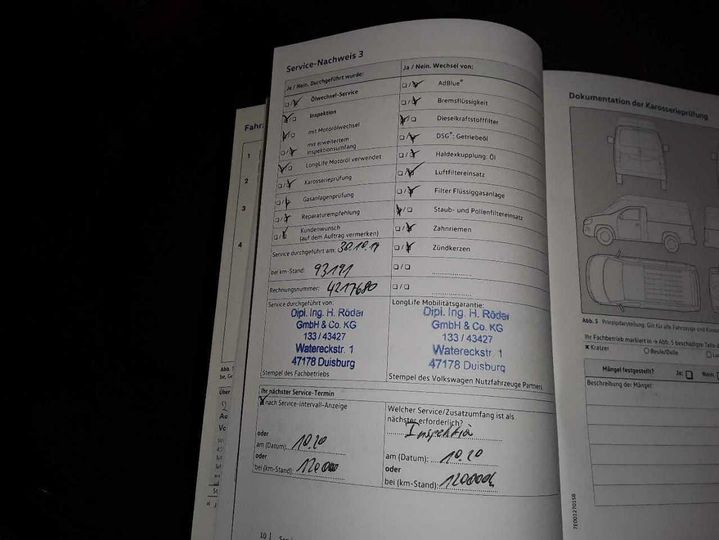 Service-Nachweis 3
Ja / Nein. Durchgeführt wurde:
Ölwechsel-Service
Inspektion
mit Motorölwechsel
mit erweitertem
Inspektionsumfang
LongLife Motoröl verwendet
Karosserieprüfung
Gasanlagenprüfung
Reparaturempfehlung
Kundenwunsch
(auf dem Auftrag vermerken)
Service durchgeführt am:
bei km-Stand: 93191
Rechnungsnummer: 4217680
Service durchgeführt von:
Dipl. Ing. H. Röder
GmbH & Co. KG
133 / 43427
Watereckstr. 1
47178 Duisburg
Stempel des Fachbetriebs
Ja / Nein. Wechsel von:
AdBlue®
Bremsflüssigkeit
Dieselkraftstofffilter
DSG®: Getriebeöl
Haldexkupplung: Öl
Luftfiltereinsatz
Filter Flüssiggasanlage
Staub- und Pollenfiltereinsatz
Zahnriemen
Zündkerzen
LongLife Mobilitätsgarantie:
Dipl. Ing. H. Röder
GmbH & Co. KG
133 / 43427
Watereckstr. 1
47178 Duisburg
Stempel des Volkswagen Nutzfahrzeuge Partners
Ihr nächster Service-Termin
nach Service-Intervall-Anzeige
oder
am (Datum): 10.20
oder
bei (km-Stand): 120000
Welcher Service/Zusatzumfang ist als
nächster erforderlich?
Inspektion
am (Datum): 10.20
bei (km-Stand): 120000
10
Fahrz
1
3
4
Dokumentation der Karosserieprüfung
Abb. 5 Prinzipdarstellung: Gilt für alle Fahrzeuge und
Ihr Fachbetrieb markiert in → Abb. 5 beschädigte Teile
x Kratzer
o Beule/Delle
Mängel festgestellt? Ja: Nein:
Beschreibung der Mängel:
7E0012701SB